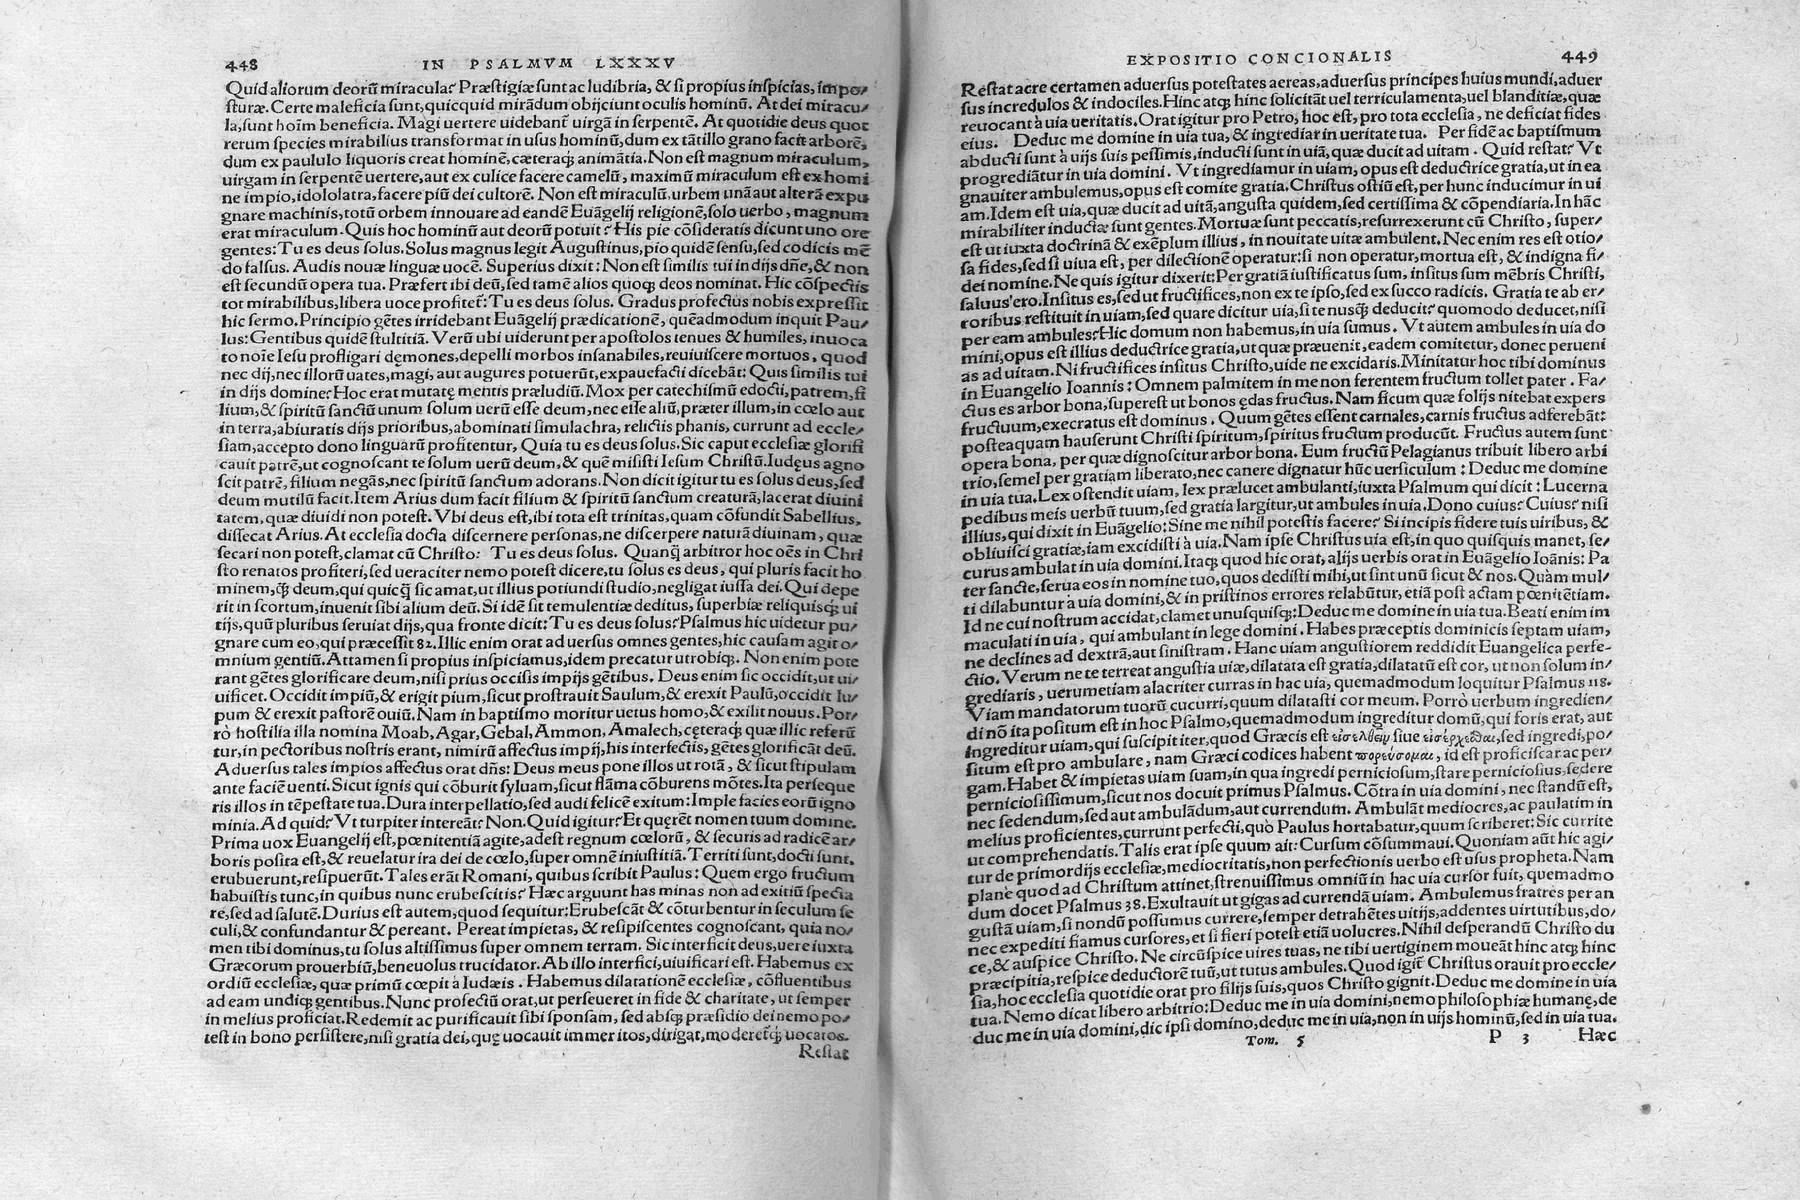 448 IN PSALMVM LXXXV
Quid aliorum deorũ miracula? Præstigiæ sunt ac ludibria, & si propius inspicias, impo/
sturæ. Certe maleficia sunt, quicquid mirãdum obijciunt oculis hominũ. At dei miracu/
la, sunt hoĩm beneficia. Magi uertere uidebant̃ uirgã in serpentẽ. At quotidie deus quot
rerum species mirabilius transformat in usus hominũ, dum ex tãtillo grano facit arborẽ,
dum ex paululo liquoris creat hominẽ, cæteraq; animãtia. Non est magnum miraculum,
uirgam in serpentẽ uertere, aut ex culice facere camelũ, maximũ miraculum est ex homi
ne impio, idololatra, facere piũ dei cultorẽ. Non est miraculũ, urbem unã aut alterã expu
gnare machinis, totũ orbem innouare ad eandẽ Euãgelij religionẽ, solo uerbo, magnum
erat miraculum. Quis hoc hominũ aut deorũ potuit? His pie cõsideratis dicunt uno ore
gentes: Tu es deus solus. Solus magnus legit Augustinus, pio quidẽ sensu, sed codicis mẽ
do falsus. Audis nouæ linguæ uocẽ. Superius dixit: Non est similis tui in dijs dñe, & non
est secundũ opera tua. Præfert ibi deũ, sed tamẽ alios quoq; deos nominat. Hic cõspectis
tot mirabilibus, libera uoce profitet̃: Tu es deus solus. Gradus profectus nobis expressit
hic sermo. Principio gẽtes irridebant Euãgelij prædicationẽ, quẽadmodum inquit Pau/
lus: Gentibus quidẽ stultitiã. Verũ ubi uiderunt per apostolos tenues & humiles, inuoca
to noĩe Iesu profligari dęmones, depelli morbos insanabiles, reuiuiscere mortuos, quod
nec dij, nec illorũ uates, magi, aut augures potuerũt, expauefacti dicebãt: Quis similis tui
in dijs domine? Hoc erat mutatę mentis præludiũ. Mox per catechismũ edocti, patrem, fi
lium, & spiritũ sanctũ unum solum uerũ esse deum, nec esse aliũ, præter illum, in cœlo aut
in terra, abiuratis dijs prioribus, abominati simulachra, relictis phanis, currunt ad eccle/
siam, accepto dono linguarũ profitentur, Quia tu es deus solus. Sic caput ecclesiæ glorifi
cauit patrẽ, ut cognoscant te solum uerũ deum, & quẽ misisti Iesum Christũ. Iudęus agno
scit patrẽ, filium negãs, nec spiritũ sanctum adorans. Non dicit igitur tu es solus deus, sed
deum mutilũ facit. Item Arius dum facit filium & spiritũ sanctum creaturã, lacerat diuini
tatem, quæ diuidi non potest. Vbi deus est, ibi tota est trinitas, quam cõfundit Sabellius,
dissecat Arius. At ecclesia docta discernere personas, ne discerpere naturã diuinam, quæ
secari non potest, clamat cũ Christo: Tu es deus solus. Quanq̃ arbitror hoc oẽs in Chri
sto renatos profiteri, sed ueraciter nemo potest dicere, tu solus es deus, qui pluris facit ho
minem, q̃ deum, qui quicq̃ sic amat, ut illius potiundi studio, negligat iussa dei. Qui depe
rit in scortum, inuenit sibi alium deũ. Si idẽ sit temulentiæ deditus, superbiæ reliquisq; ui
tijs, quũ pluribus seruiat dijs, qua fronte dicit: Tu es deus solus? Psalmus hic uidetur pu/
gnare cum eo, qui præcessit 82. Illic enim orat aduersus omnes gentes, hic causam agit o/
mnium gentiũ. Attamen si propius inspiciamus, idem precatur utrobiq;. Non enim pote
rant gẽtes glorificare deum, nisi prius occisis impijs gẽtibus. Deus enim sic occidit, ut ui/
uificet. Occidit impiũ, & erigit pium, sicut prostrauit Saulum, & erexit Paulũ, occidit lu/
pum & erexit pastorẽ ouiũ. Nam in baptismo moritur uetus homo, & exilit nouus. Por/
rò hostilia illa nomina Moab, Agar, Gebal, Ammon, Amalech, cęteraq; quæ illic referũ
tur, in pectoribus nostris erant, nimirũ affectus impij, his interfectis, gẽtes glorificãt deũ.
Aduersus tales impios affectus orat dñs: Deus meus pone illos ut rotã, & sicut stipulam
ante faciẽ uenti. Sicut ignis qui cõburit syluam, sicut flãma cõburens mõtes. Ita perseque
ris illos in tẽpestate tua. Dura interpellatio, sed audi felicẽ exitum: Imple facies eorũ igno
minia. Ad quid? Vt turpiter intereãt? Non. Quid igitur? Et quęrẽt nomen tuum domine.
Prima uox Euangelij est, pœnitentiã agite, adest regnum cœlorũ, & securis ad radicẽ ar/
boris posita est, & reuelatur ira dei de cœlo, super omnẽ iniustitiã. Territi sunt, docti sunt,
erubuerunt, resipuerũt. Tales erãt Romani, quibus scribit Paulus: Quem ergo fructum
habuistis tunc, in quibus nunc erubescitis? Hæc arguunt has minas non ad exitiũ specta
re, sed ad salutẽ. Durius est autem, quod sequitur: Erubescãt & cõturbentur in seculum se
culi, & confundantur & pereant. Pereat impietas, & resipiscentes cognoscant, quia no/
men tibi dominus, tu solus altissimus super omnem terram. Sic interficit deus, uere iuxta
Græcorum prouerbiũ, beneuolus trucidator. Ab illo interfici, uiuificari est. Habemus ex
ordiũ ecclesiæ, quæ primũ cœpit à Iudæis. Habemus dilatationẽ ecclesiæ, cõfluentibus
ad eam undiq; gentibus. Nunc profectũ orat, ut perseueret in fide & charitate, ut semper
in melius proficiat. Redemit ac purificauit sibi sponsam, sed absq; præsidio dei nemo po/
test in bono persistere, nisi gratia dei, quę uocauit immeritos, dirigat, moderet̃q; uocatos.
Restat
EXPOSITIO CONCIONALIS 449
Restat acre certamen aduersus potestates aereas, aduersus principes huius mundi, aduer
sus incredulos & indociles. Hinc atq; hinc solicitãt uel terriculamenta, uel blanditiæ, quæ
reuocant à uia ueritatis. Orat igitur pro Petro, hoc est, pro tota ecclesia, ne deficiat fides
eius. Deduc me domine in uia tua, & ingrediar in ueritate tua. Per fidẽ ac baptismum
abducti sunt à uijs suis pessimis, inducti sunt in uiã, quæ ducit ad uitam. Quid restat? Vt
progrediãtur in uia domini. Vt ingrediamur in uiam, opus est deductrice gratia, ut in ea
gnauiter ambulemus, opus est comite gratia. Christus ostiũ est, per hunc inducimur in ui
am. Idem est uia, quæ ducit ad uitã, angusta quidem, sed certissima & cõpendiaria. In hãc
mirabiliter inductæ sunt gentes. Mortuæ sunt peccatis, resurrexerunt cũ Christo, super/
est ut iuxta doctrinã & exẽplum illius, in nouitate uitæ ambulent. Nec enim res est otio/
sa fides, sed si uiua est, per dilectionẽ operatur: si non operatur, mortua est, & indigna fi/
dei nomine. Ne quis igitur dixerit: Per gratiã iustificatus sum, insitus sum mẽbris Christi,
saluus ero. Insitus es, sed ut fructifices, non ex te ipso, sed ex succo radicis. Gratia te ab er/
roribus restituit in uiam, sed quare dicitur uia, si te nusq̃ deducit? quomodo deducet, nisi
per eam ambules? Hic domum non habemus, in uia sumus. Vt autem ambules in uia do
mini, opus est illius deductrice gratia, ut quæ præuenit, eadem comitetur, donec perueni
as ad uitam. Ni fructifices insitus Christo, uide ne excidaris. Minitatur hoc tibi dominus
in Euangelio Ioannis: Omnem palmitem in me non ferentem fructum tollet pater. Fa/
ctus es arbor bona, superest ut bonos ędas fructus. Nam ficum quæ folijs nitebat expers
fructuum, execratus est dominus. Quum gẽtes essent carnales, carnis fructus adferebãt:
posteaquam hauserunt Christi spiritum, spiritus fructum producũt. Fructus autem sunt
opera bona, per quæ dignoscitur arbor bona. Eum fructũ Pelagianus tribuit libero arbi
trio, semel per gratiam liberato, nec canere dignatur hũc uersiculum: Deduc me domine
in uia tua. Lex ostendit uiam, lex prælucet ambulanti, iuxta Psalmum qui dicit: Lucerna
pedibus meis uerbũ tuum, sed gratia largitur, ut ambules in uia. Dono cuius? Cuius? nisi
illius, qui dixit in Euãgelio: Sine me nihil potestis facere? Si incipis fidere tuis uiribus, &
obliuisci gratiæ, iam excidisti à uia. Nam ipse Christus uia est, in quo quisquis manet, se/
curus ambulat in uia domini. Itaq; quod hic orat, alijs uerbis orat in Euãgelio Ioãnis: Pa
ter sancte, serua eos in nomine tuo, quos dedisti mihi, ut sint unũ sicut & nos. Quàm mul/
ti dilabuntur à uia domini, & in pristinos errores relabũtur, etiã post actam pœnitẽtiam.
Id ne cui nostrum accidat, clamet unusquisq;: Deduc me domine in uia tua. Beati enim im
maculati in uia, qui ambulant in lege domini. Habes præceptis dominicis septam uiam,
ne declines ad dextrã, aut sinistram. Hanc uiam angustiorem reddidit Euangelica perfe-
ctio. Verum ne te terreat angustia uiæ, dilatata est gratia, dilatatũ est cor, ut non solum in/
grediaris, uerumetiam alacriter curras in hac uia, quemadmodum loquitur Psalmus 118.
Viam mandatorum tuorũ cucurri, quum dilatasti cor meum. Porrò uerbum ingredien/
di nõ ita positum est in hoc Psalmo, quemadmodum ingreditur domũ, qui foris erat, aut
ingreditur uiam, qui suscipit iter, quod Græcis est εἰσελθεῖν siue εἰσέρχεσθαι, sed ingredi, po/
situm est pro ambulare, nam Græci codices habent πορεύσομαι, id est proficiscar ac per/
gam. Habet & impietas uiam suam, in qua ingredi perniciosum, stare perniciosius, sedere
perniciosissimum, sicut nos docuit primus Psalmus. Cõtra in uia domini, nec standũ est,
nec sedendum, sed aut ambulãdum, aut currendum. Ambulãt mediocres, ac paulatim in
melius proficientes, currunt perfecti, quò Paulus hortabatur, quum scriberet: Sic currite
ut comprehendatis. Talis erat ipse quum ait: Cursum cõsummaui. Quoniam aũt hic agi/
tur de primordijs ecclesiæ, mediocritatis, non perfectionis uerbo est usus propheta. Nam
plane quod ad Christum attinet, strenuissimus omniũ in hac uia cursor fuit, quemadmo
dum docet Psalmus 38. Exultauit ut gigas ad currendã uiam. Ambulemus fratres per an
gustã uiam, si nondũ possumus currere, semper detrahẽtes uitijs, addentes uirtutibus, do/
nec expediti fiamus cursores, et si fieri potest etiã uolucres. Nihil desperandũ Christo du
ce, & auspice Christo. Ne circũspice uires tuas, ne tibi uertiginem moueãt hinc atq; hinc
præcipitia, respice deductorẽ tuũ, ut tutus ambules. Quod igit̃ Christus orauit pro eccle/
sia, hoc ecclesia quotidie orat pro filijs suis, quos Christo gignit. Deduc me domine in uia
tua. Nemo dicat libero arbitrio: Deduc me in uia domini, nemo philosophiæ humanę, de
duc me in uia domini, dic ipsi domino, deduc me in uia, non in uijs hominũ, sed in uia tua.
Tom. 5 P 3 Hæc